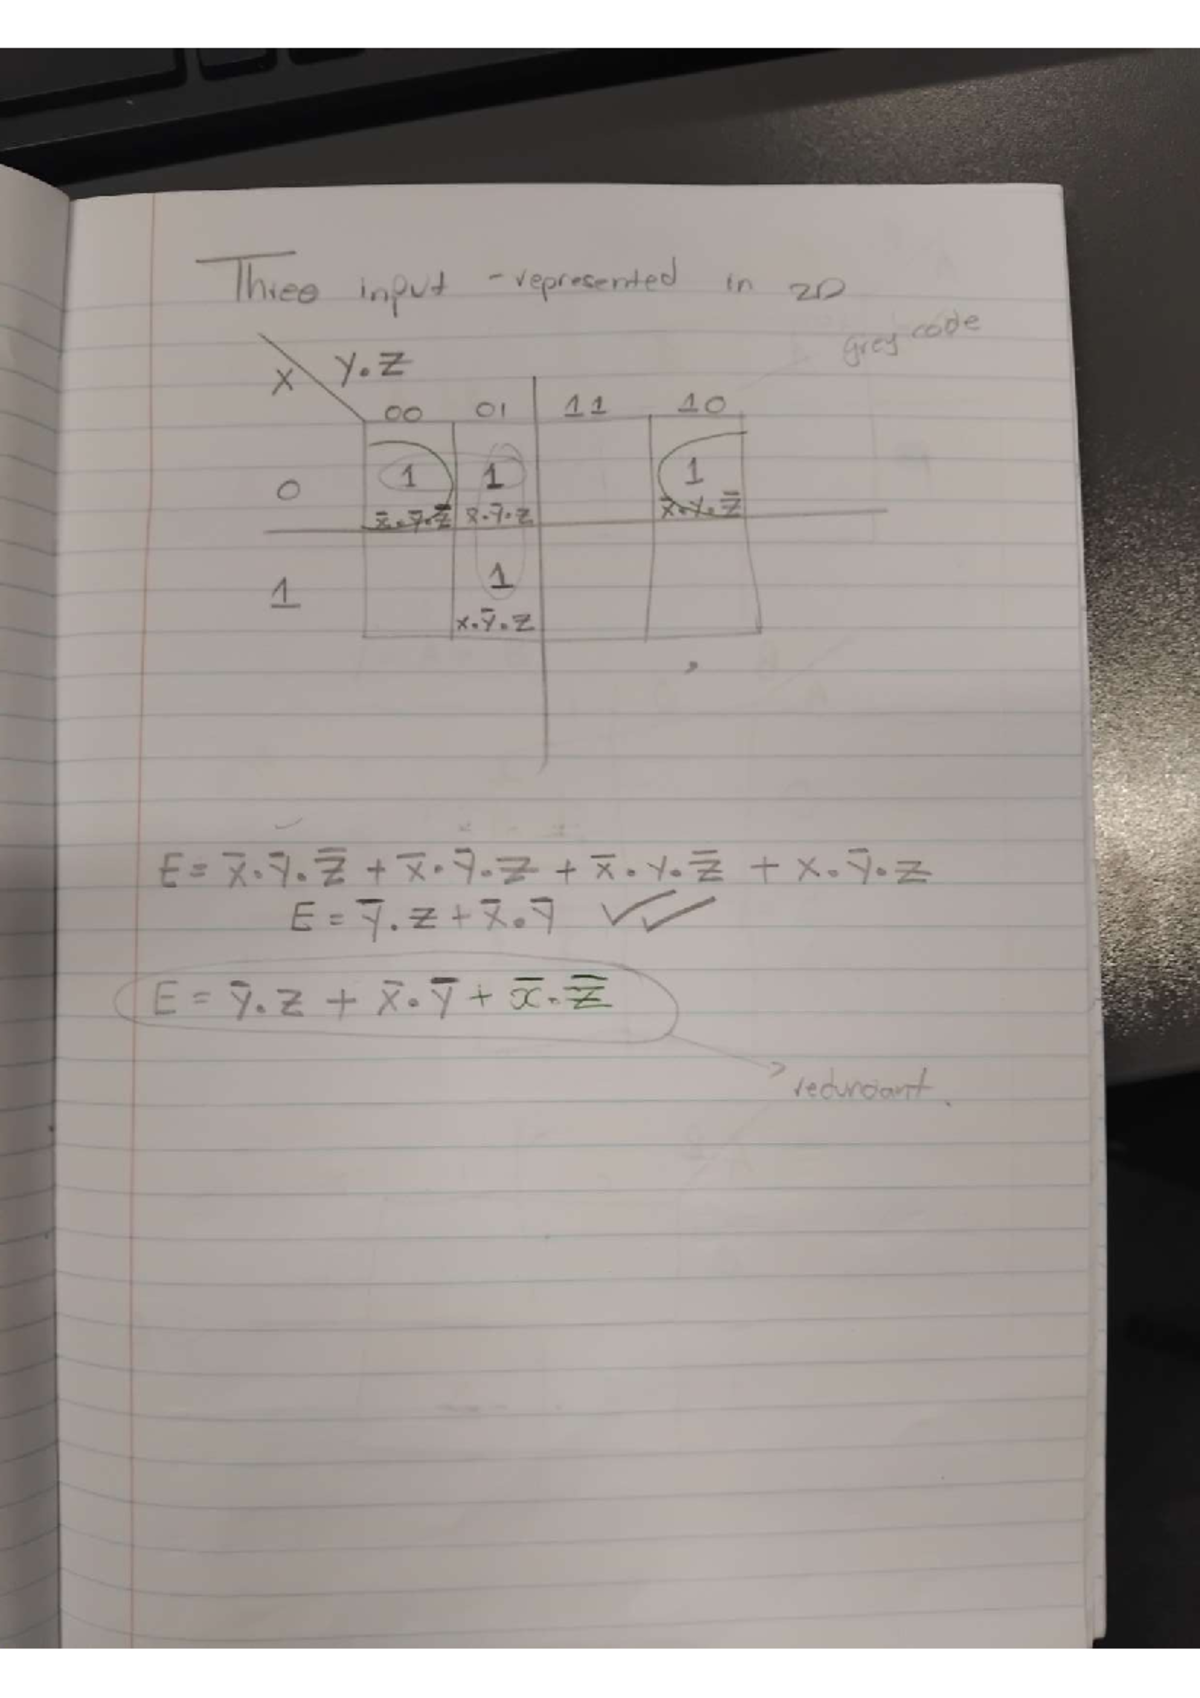 Three input - represented in 2D
grey code
X Y.Z
00 01 11 10
0 1 1 1
X̅.Y̅.Z̅ X̅.Y̅.Z X̅.Y.Z̅
1 1
X.Y̅.Z
E = X̅.Y̅.Z̅ + X̅.Y̅.Z + X̅.Y.Z̅ + X.Y̅.Z
E = Y̅.Z + X̅.Y̅ ✓✓
E = Y̅.Z + X̅.Y̅ + X̅.Z̅
redundant.